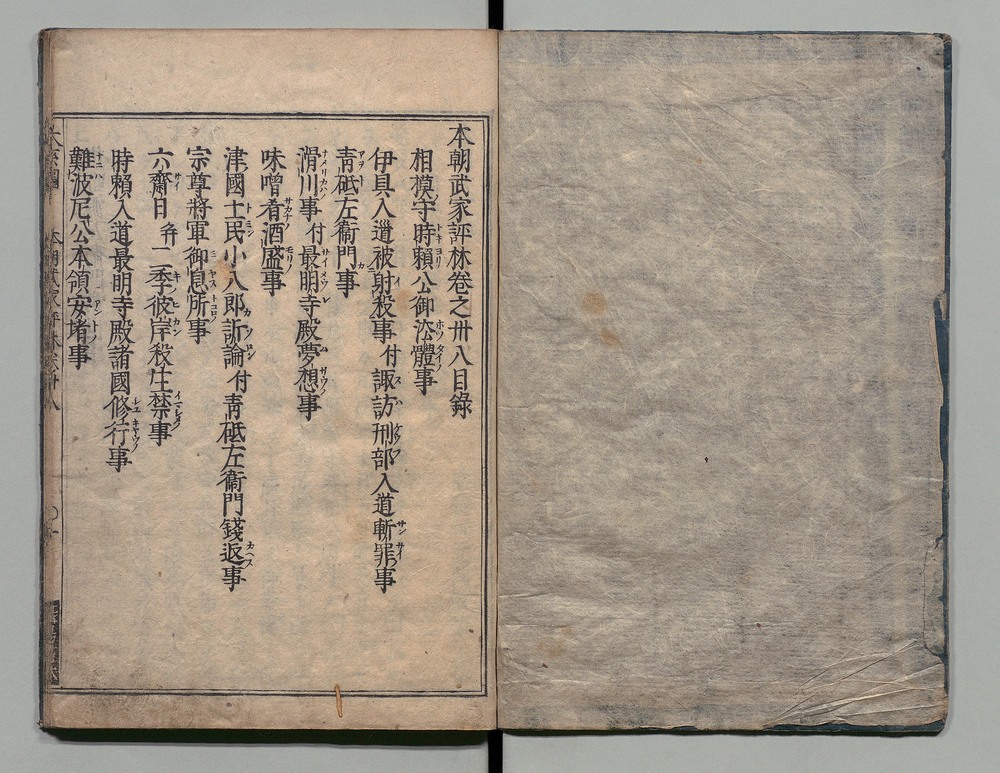 本朝武家評林卷之卅八目錄
相摸守時賴公御沙體事
伊具入道被射殺事付諏訪刑部入道斬罪事
靑砥左衞門事
滑川事付最明寺殿夢想事
味噌肴酒盛事
津國土民小八郎訴論付靑砥左衞門錢返事
宗尊將軍御息所事
六齋日幷二季彼岸殺生禁事
時賴入道最明寺殿諸國修行事
難波尼公本領安堵事
本朝武家評林卷卅八